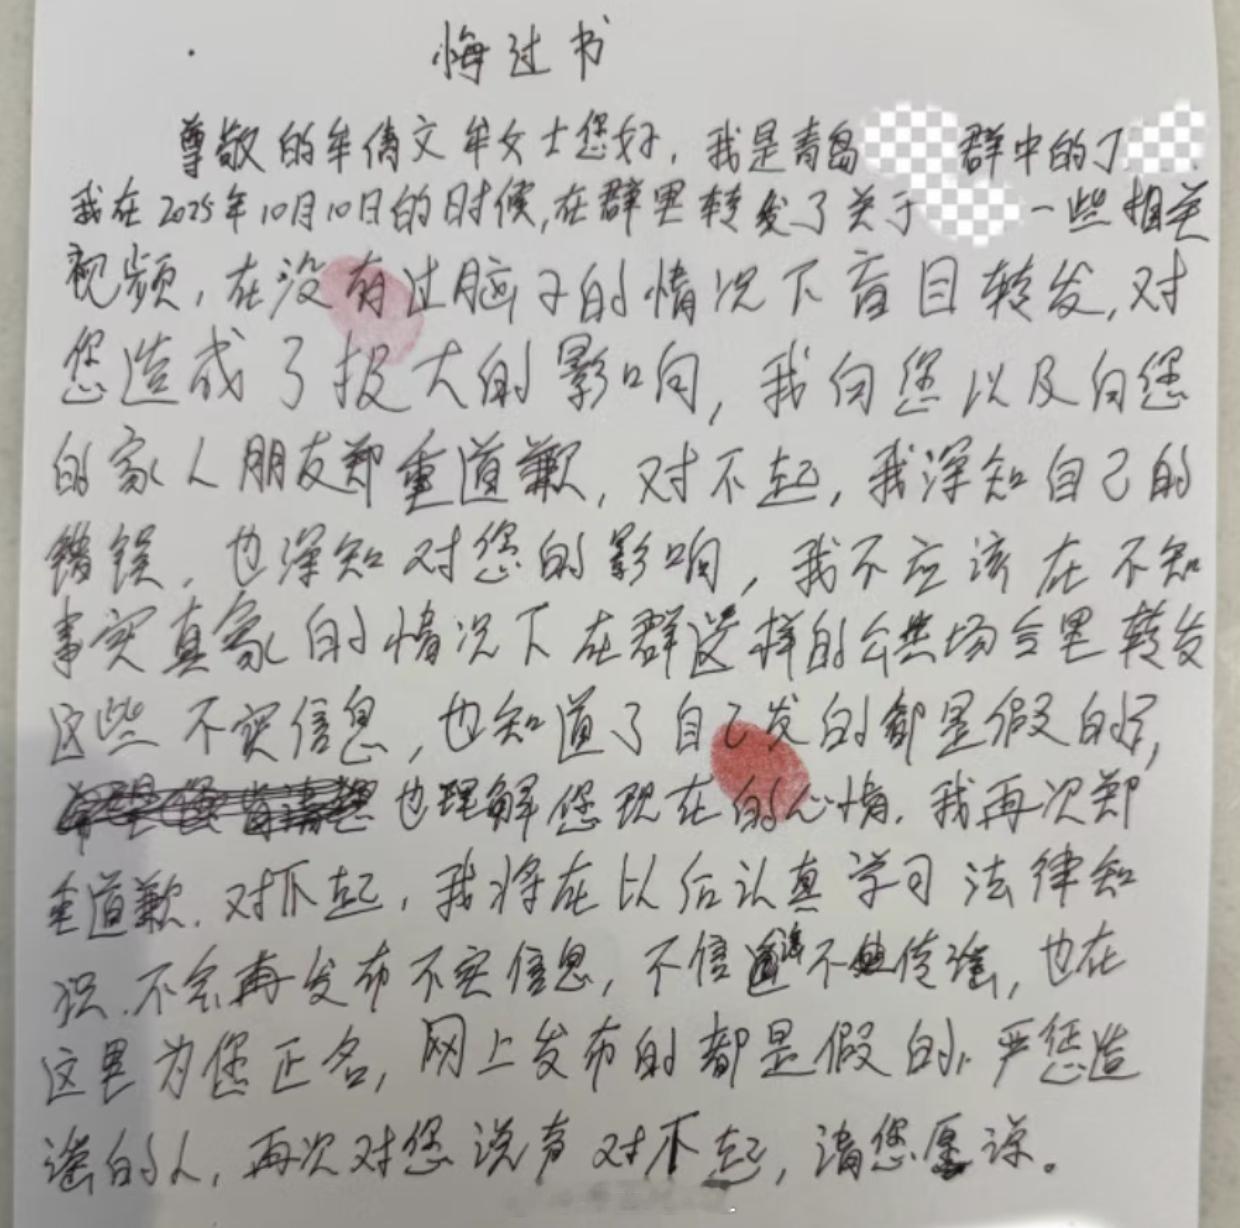 悔过书
尊敬的牟倩文牟女士您好，我是青岛 群中的丁
我在2025年10月10日的时候，在群里转发了关于 一些相关
视频，在没有过脑子的情况下盲目转发，对
您造成了极大的影响，我向您以及向您
的家人朋友郑重道歉，对不起，我深知自己的
错误，也深知对您的影响，我不应该在不知
事实真象的情况下在群这样的公共场合里转发
这些不实信息，也知道了自己发的都是假的，
也理解您现在的心情。我再次郑
重道歉。对不起，我将在以后认真学习法律知
识。不会再发布不实信息，不信谣不传谣，也在
这里为您正名，网上发布的都是假的，严惩造
谣的人，再次对您说声对不起，请您原谅。